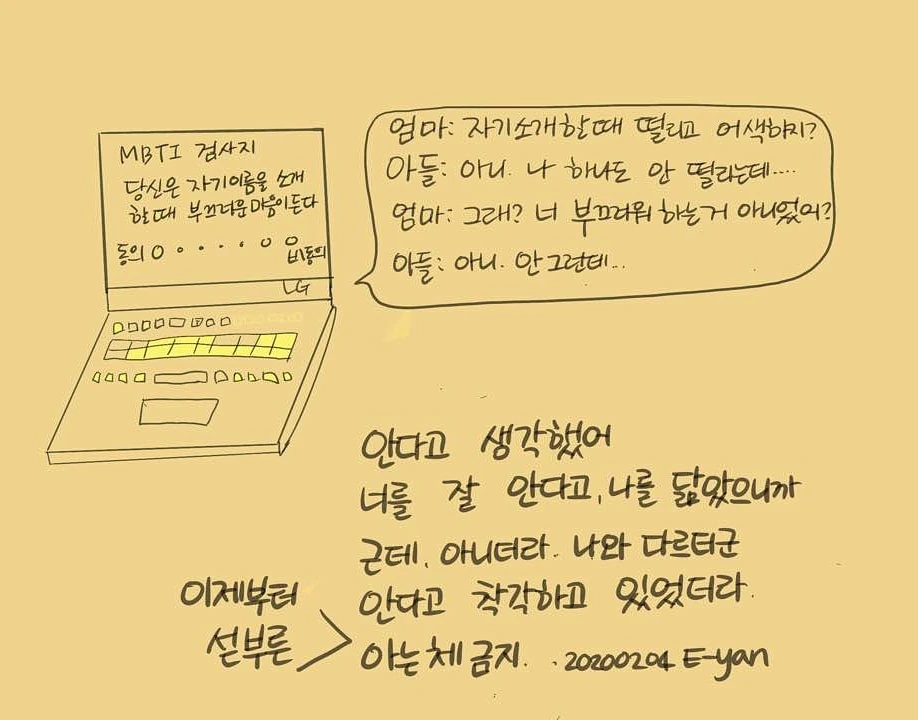 MBTI 검사지
당신은 자기이름을 소개
할때 부끄러운마음이든다
동의 비동의
LG
엄마: 자기소개할때 떨리고 어색하지?
아들: 아니. 나 하나도 안 떨리는데....
엄마: 그래? 너 부끄러워 하는거 아니었어?
아들: 아니. 안그런데...
안다고 생각했어
너를 잘 안다고, 나를 닮았으니까
근데, 아니더라. 나와 다르더군
안다고 착각하고 있었더라.
이제부터
섣부른
아는체 금지. . 20200204 E-yan